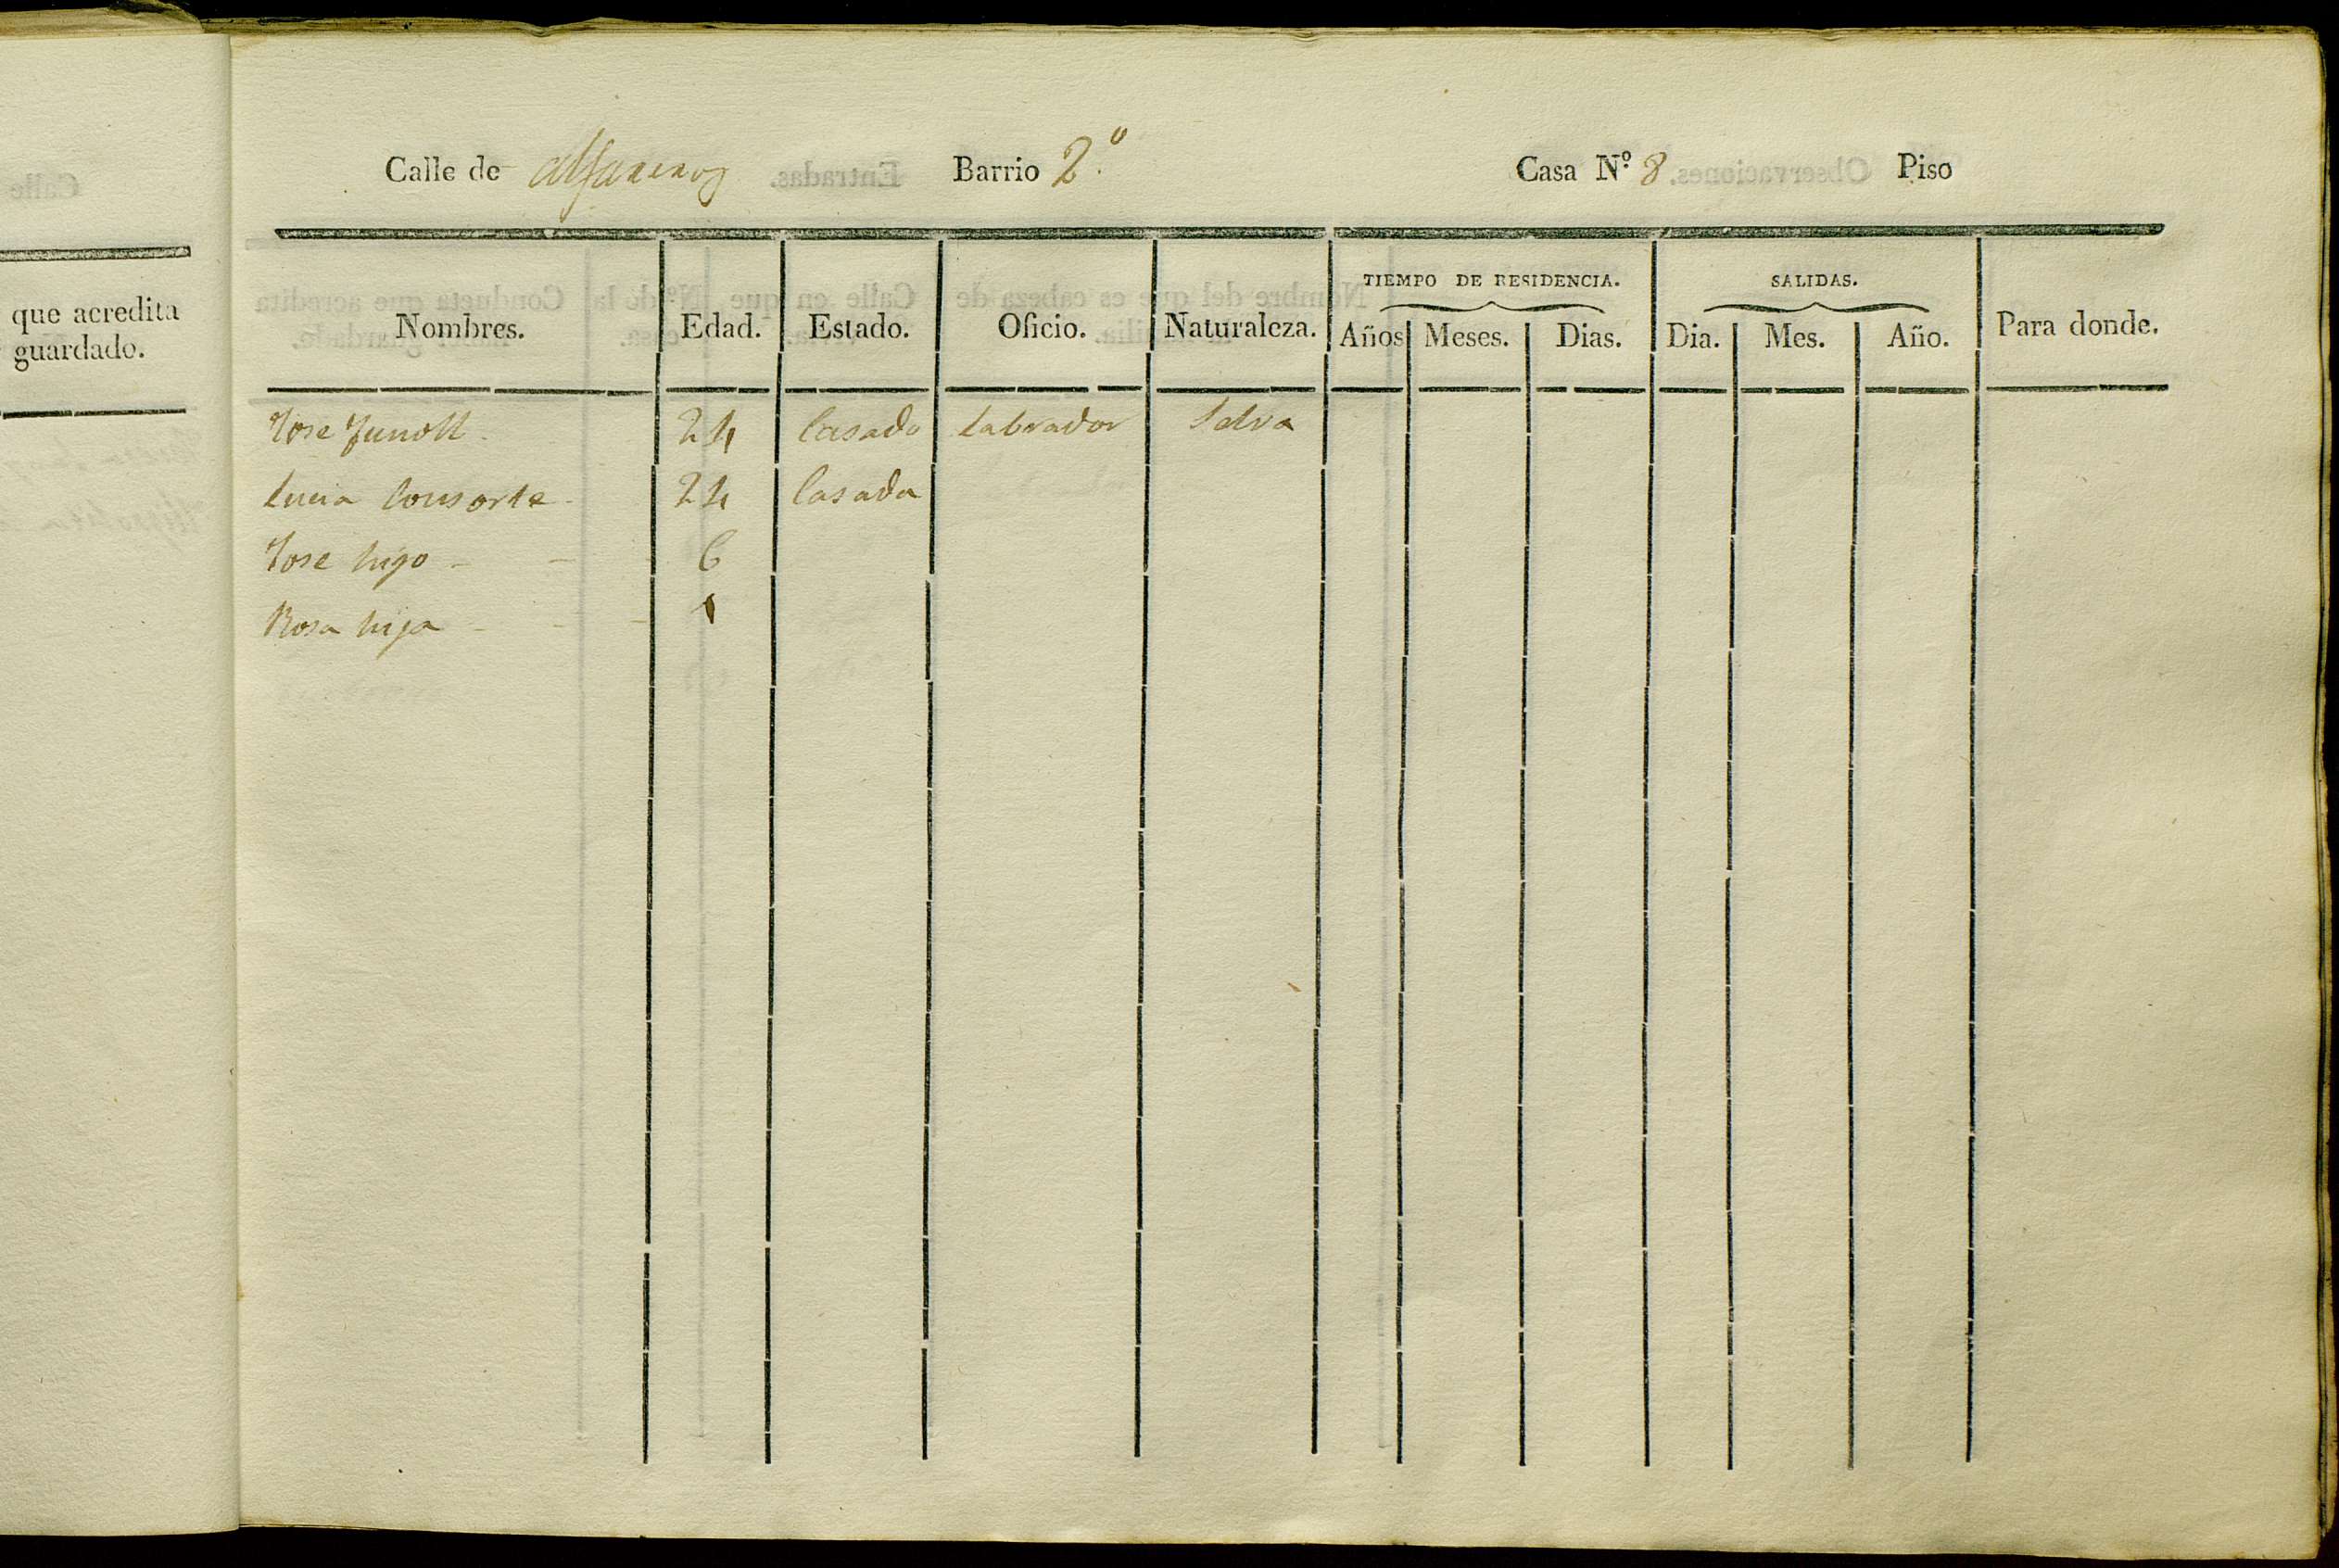 que acredita
guardado.
Calle de Alfareros Barrio 2.º Casa N.º 8. Piso
TIEMPO DE RESIDENCIA. SALIDAS.
Nombres. Edad. Estado. Oficio. Naturaleza. Años Meses. Dias. Dia. Mes. Año. Para donde.
Jose 24 Casado Labrador Selva
Lucia Consorte 24 Casada
Jose hijo - - - 6
Rosa hija - - - 1